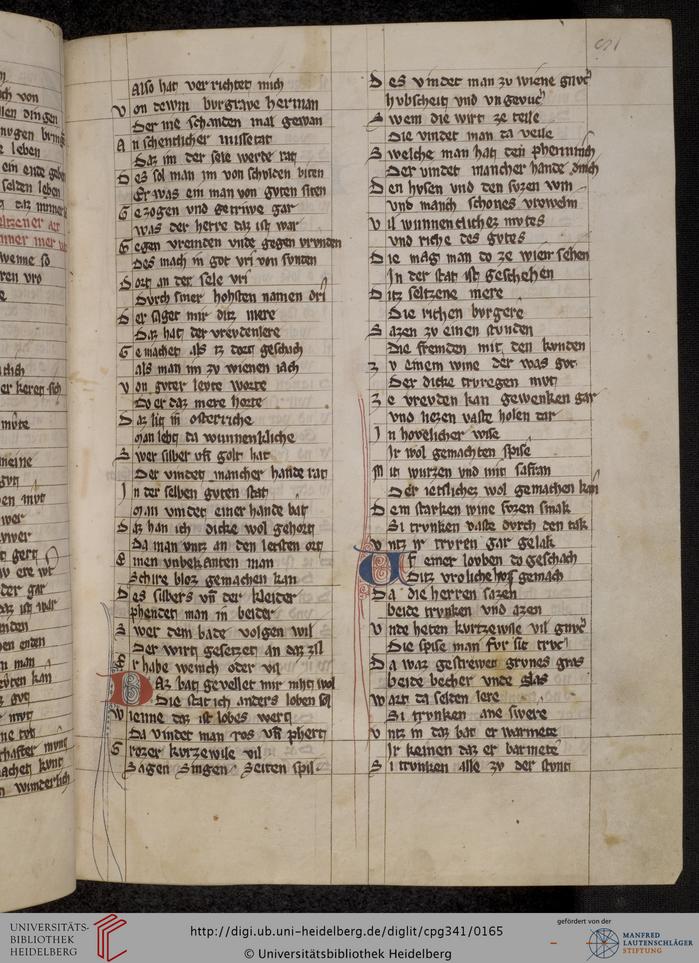 Also hat verrichtet mich
Von dewin burgrave herman
Der ine schanden mal gewan
An schentlicher missetat
Daz im der sele werde rat
Des sol man im von schulden biten
Er was ein man von guten siten
Gezogen und getriwe gar
was der herre daz ist war
Gegen vremden unde gegen vrunden
Des mach in got vri von sunden
Dort an der sele vri
Durch siner hohsten namen dri
Der saget mir ditz mere
Daz hat der vreudenlere
Gemachet als iz dort geschach
als man im zu wienen iach
Von guter leute worte
Do er daz mere horte
Daz lit in osterriche
man lebt da wunnenkliche
Swer silber vn̄ golt hat
Der vindet mancher hande rat
In der selben guten stat
man vindet einer hande bat
Daz han ich dicke wol gehort
Da man untz an den letsten ort
Einen unbekanten man
Schire bloz gemachen kan
Des silbers vn̄ der kleider
phendet man in beider
Swer dem bade volgen wil
Der wirt gesetzet an daz zil
Er habe wenich oder vil
Daz bat gevellet mir niht wol
Die stat ich anders loben sol
Wienne daz ist lobes wert
Da vindet man ros vn̄ phert
Grozer kurzewile vil
Sagen singen seiten spil
Des vindet man zu wiene gnuc
hubscheit und ungevuc
Swem die wirt ze teile
Die vindet man da veile
Swelche man hat den phenninch
Der vindet mancher hande dinch
Den husen und den suzen win
und manich schones vrowelin
Vil wunnentlichez mutes
und riche des gutes
Die mag man do ze wien sehen
In der stat ist geschehen
Ditz seltzene mere
Die richen burgere
Sazen zu einen stunden
Die fremden mit den kunden
Zu einem wine der was gut
Der dicke truregen mut
Ze vreuden kan gewenken gar
und hiezen vaste holen dar
In hovelicher wise
Ir wol gemachten spise
Mit wurzen und mit safran
Der ietslichez wol gemachen kan
Dem starken wine suzen smak
Si trunken vaste durch den tak
Untz ir truren gar gelak
Uf einer louben do geschach
Ditz vroliche gemach
Da die herren sazen
beide trunken und azen
Unde heten kurtzewile vil gnuc
Die spise man fur sie truc
Da waz gestrewet grunes gras
beide becher unde glas
Wart da selden lere
Si trunken ane swere
Untz in daz bat er warmete
Ir keinen daz er barmete
Si trunken alle zu der stunt
UNIVERSITÄTS-
BIBLIOTHEK
HEIDELBERG
http://digi.ub.uni-heidelberg.de/diglit/cpg341/0165
© Universitätsbibliothek Heidelberg
gefördert von der
MANFRED
LAUTENSCHLÄGER
STIFTUNG